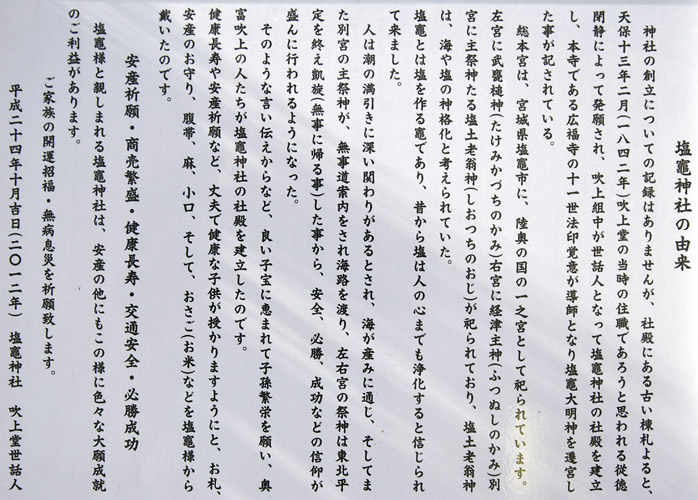 塩竈神社の由来
神社の創立についての記録はありませんが、社殿にある古い棟札よると、
天保十三年二月(一八四二年)吹上堂の当時の住職であろうと思われる従徳
閑静によって発願され、吹上組中が世話人となって塩竈神社の社殿を建立
し、本寺である広福寺の十一世法印覚意が導師となり塩竈大明神を遷宮し
た事が記されている。
総本宮は、宮城県塩竈市に、陸奥の国の一之宮として祀られています。
左宮に武甕槌神(たけみかづちのかみ)右宮に経津主神(ふつぬしのかみ)別
宮に主祭神たる塩土老翁神(しおつちのおじ)が祀られており、塩土老翁神
は、海や塩の神格化と考えられていた。
塩竈とは塩を作る竈であり、昔から塩は人の心までも浄化すると信じられ
て来ました。
人は潮の満引きに深い関わりがあるとされ、海が産みに通じ、そしてま
た別宮の主祭神が、無事道案内をされ海路を渡り、左右宮の祭神は東北平
定を終え凱旋(無事に帰る事)した事から、安全、必勝、成功などの信仰が
盛んに行われるようになった。
そのような言い伝えからなど、良い子宝に恵まれて子孫繁栄を願い、奥
富吹上の人たちが塩竈神社の社殿を建立したのです。
健康長寿や安産祈願など、丈夫で健康な子供が授かりますようにと、お札、
安産のお守り、腹帯、麻、小口、そして、おさご(お米)などを塩竈様から
戴いたのです。
安産祈願・商売繁盛・健康長寿・交通安全・必勝成功
塩竈様と親しまれる塩竈神社は、安産の他にもこの様に色々な大願成就
のご利益があります。
ご家族の開運招福・無病息災を祈願致します。
平成二十四年十月吉日(二〇一二年) 塩竈神社 吹上堂世話人